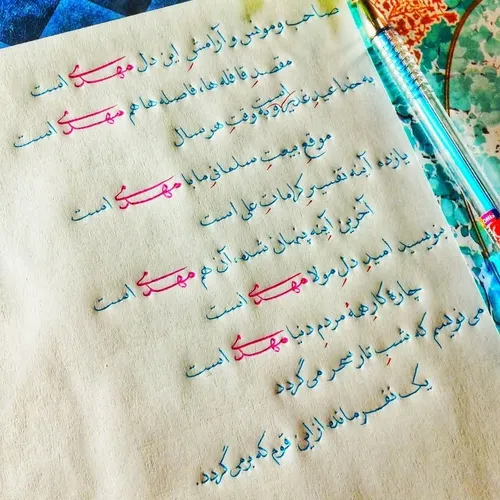 صاحب و مونس و آرامش این دل مهدی است
مقصدِ قافله ها، فاصله ها هم مهدی است
به خدا عیدِ غدیر و به وقتِ هر سال است
موقع بیعتِ سلمانیِ ما با مهدی است
یازده آینه تفسیرِ کراماتِ علی است
آخرین آینه پنهان شده، آن هم مهدی است
بنویسید امیدِ دلِ مولا مهدی است
چاره کارِ همه مردمِ دنیا مهدی است
می نویسم که شبِ تار سحر می گردد
یک نفر مانده از این قوم که برمی گردد.